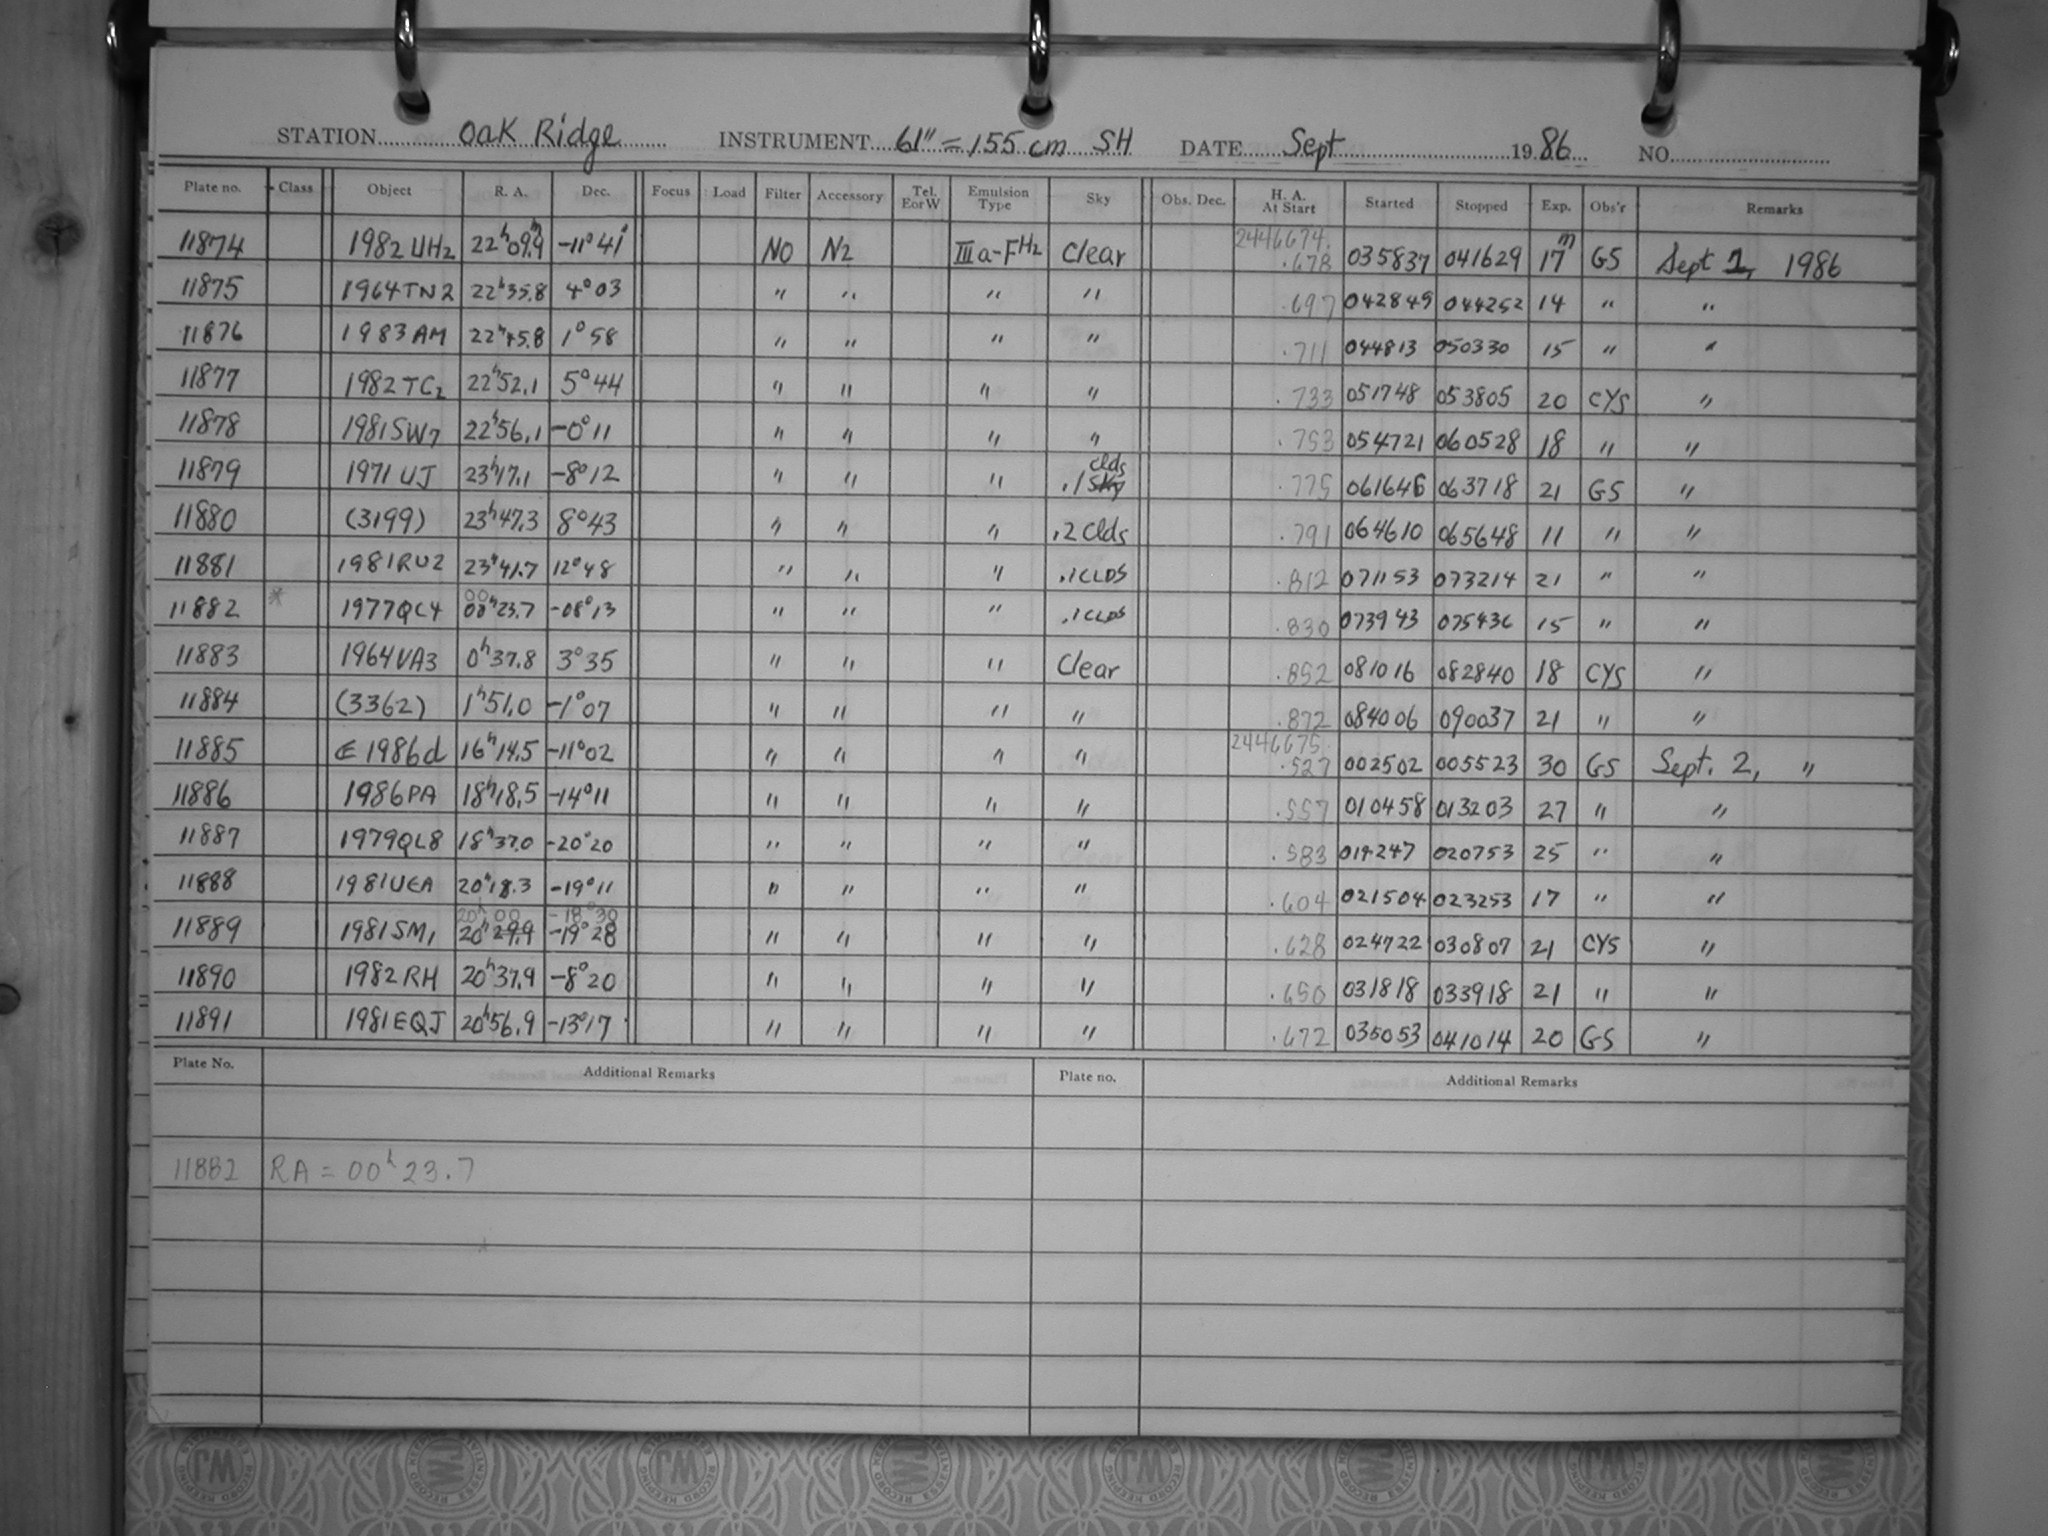 STATION Oak Ridge INSTRUMENT 61" = 155 cm SH DATE Sept 1986 NO.
Plate no. Class Object R. A. Dec. Focus Load Filter Accessory Tel. E or W Emulsion Type Sky Obs. Dec. H. A. At Start Started Stopped Exp. Obs'r Remarks
11874 1982 UH2 22h09.9m -11°41' NO N2 IIIa-F H2 Clear 2446674. .678 035837 041629 17m GS Sept 1, 1986
11875 1964TN2 22h35.8 4°03 " " " " .697 042849 044252 14 " "
11876 1983 AM 22h45.8 1°58 " " " " .711 044813 050330 15 " "
11877 1982 TC2 22h52.1 5°44 " " " " .733 051748 053805 20 CYS "
11878 1981SW7 22h56.1 -0°11 " " " " .753 054721 060528 18 " "
11879 1971 UJ 23h17.1 -8°12 " " " .1 Sky clds .775 061646 063718 21 GS "
11880 (3199) 23h47.3 8°43 " " " .2 Clds .791 064610 065648 11 " "
11881 1981RU2 23h41.7 12°48 " " " .1 CLDS .812 071153 073214 21 " "
11882 * 1977QC4 00 00h23.7 -08°13 " " " .1 CLDS .830 073943 075436 15 " "
11883 1964VA3 0h37.8 3°35 " " " Clear .852 081016 082840 18 CYS "
11884 (3362) 1h51.0 -1°07 " " " " .872 084006 090037 21 " "
11885 1986d 16h14.5 -11°02 " " " " 2446675. .527 002502 005523 30 GS Sept. 2, "
11886 1986PA 18h18.5 -14°11 " " " " .557 010458 013203 27 " "
11887 1979QL8 18h37.0 -20°20 " " " " .583 014247 020753 25 " "
11888 1981UEA 20h18.3 -19°11 " " " " .604 021504 023253 17 " "
11889 1981SM1 20h00 20h29.9 -18°30 -19°28 " " " " .628 024722 030807 21 CYS "
11890 1982 RH 20h37.9 -8°20 " " " " .650 031818 033918 21 " "
11891 1981EQJ 20h56.9 -13°17 " " " " .672 035053 041014 20 GS "
Plate No. Additional Remarks Plate no. Additional Remarks
11882 RA = 00h23.7